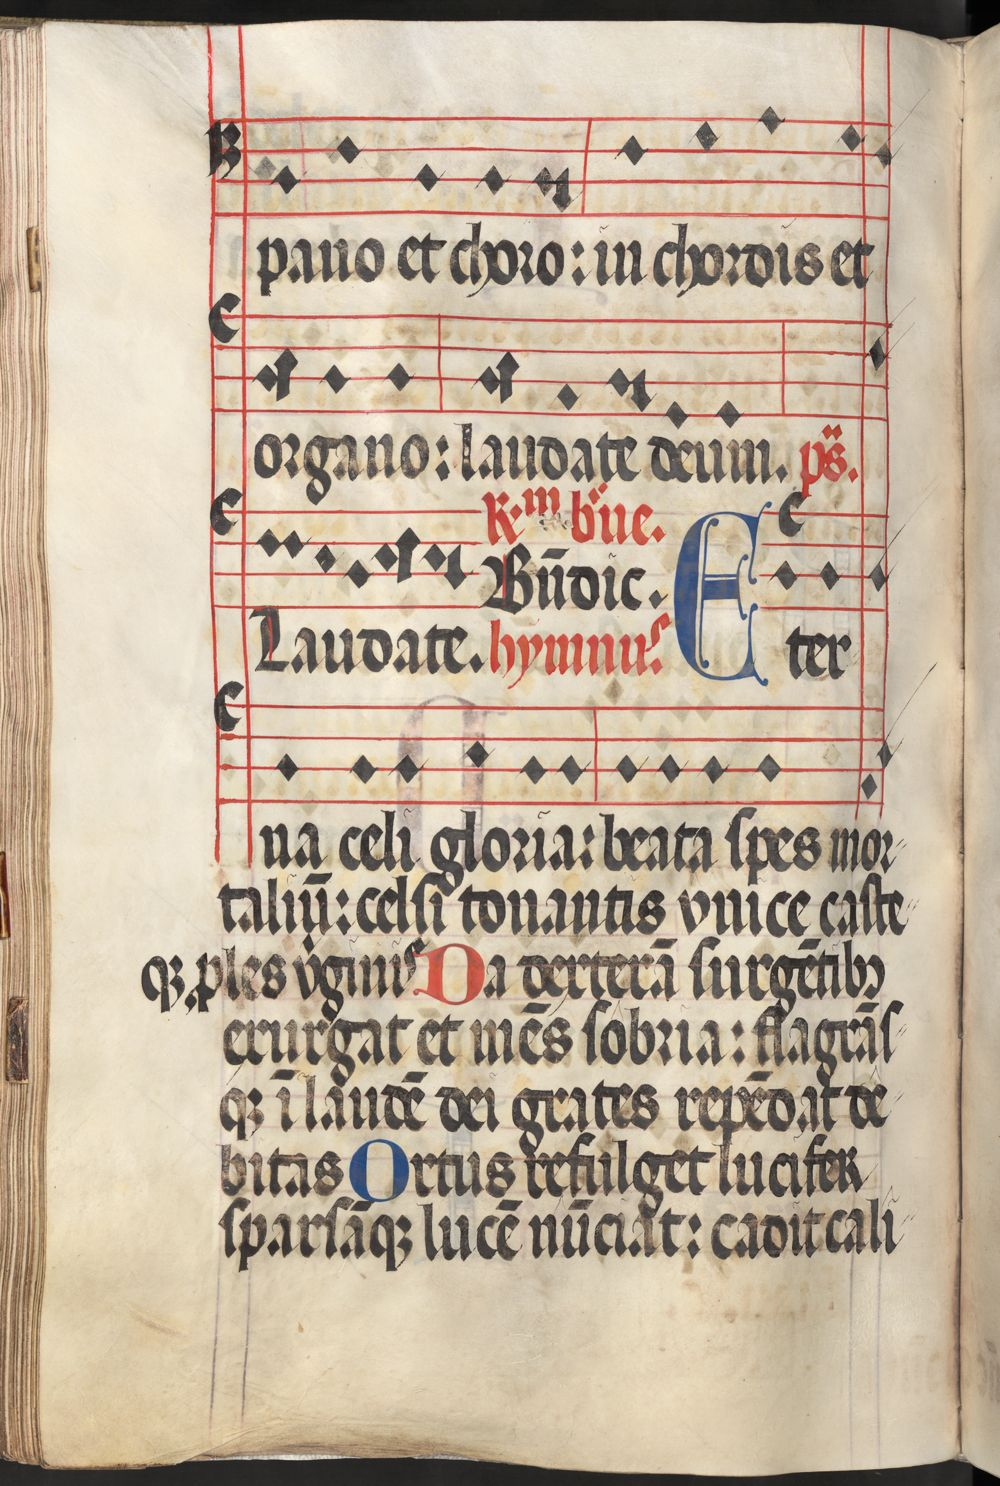 pano et choro: in chordis et
organo: laudate deum. ps̄.
R.m b'ne.
Bn̄dic.
Laudate. hymnus. Eter
na celi gloria: beata spes mor
taliū: celsi tonantis vnice caste
qꝫ ꝓles v̇ginis Da dexterā surgētibꝫ
exurgat et mēs sobria: flagrās
qꝫ ī laudē dei grates repēdat de
bitas Ortus refulget lucifer
sparsāqꝫ lucē nūciat: cadit cali